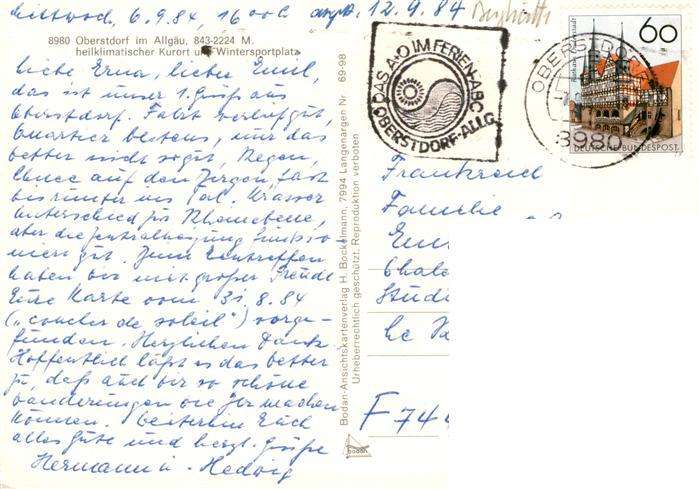 Mittwoch, 6.9.84, 16 Uhr angek. 12.9.84
8980 Oberstdorf im Allgäu, 843-2224 M.
heilklimatischer Kurort und Wintersportplatz
Liebe Erna, lieber Emil,
das ist unser 1. Gruß aus
Oberstdorf. Fahrt verlief gut,
Quartier bestens, nur das
Wetter nicht so gut, Regen,
Schnee auf den Bergen, fast
bis runter ins Tal. Krasser
Unterschied zur Rheinebene,
aber die Zentralheizung funktio
niert gut. Zum Eintreffen
haben wir mit großer Freude
Eure Karte vom 31.8.84
("coucher de soleil") vorge-
funden. Herzlichen Dank.
Hoffentlich läßt es das Wetter
zu, daß auch wir so schöne
Wanderungen wie Ihr machen
können. Weiterhin Euch
alles Gute und herzl. Grüße
Hermann u. Hedwig
69-98
Bodan-Ansichtskartenverlag H. Bockelmann, 7994 Langenargen Nr
Urheberrechtlich geschützt, Reproduktion verboten
bodan
DAS A+O IM FERIEN-ABC
OBERSTDORF-ALLG.
OBERSTDORF
8980
60
DEUTSCHE BUNDESPOST
Frankreich
Familie
F 744